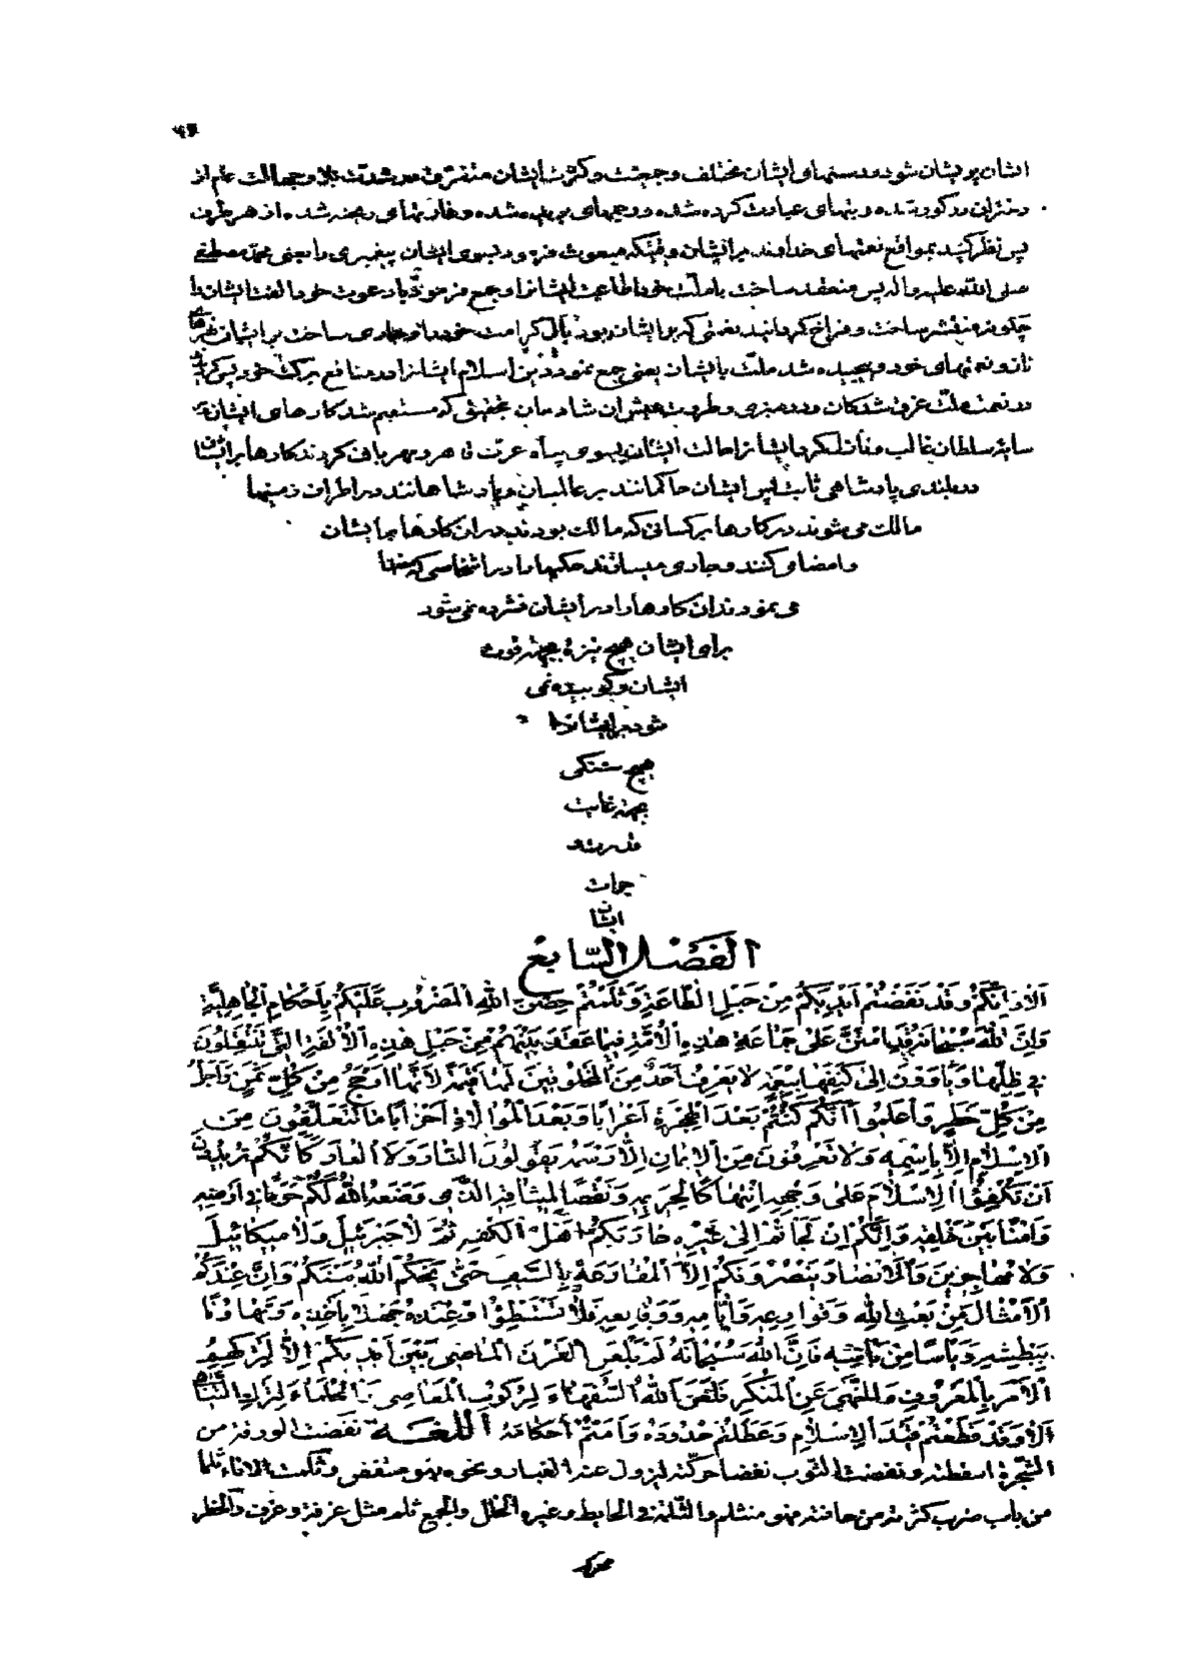 ایشان پریشان شود و دستهای ایشان مختلف و جمعیت و کثرت ایشان متفرق در شدت بلا و جهالت عام از
دختران در کور شده و بتهای عبادت کرده شده و رحمهای بریده شده و غارتهای ریخته شده از هر طرف
پس نظر کنید بمواقع نعمتهای خداوند بر ایشان وقتیکه مبعوث فرمود بسوی ایشان پیغمبری را یعنی محمد مصطفی
صلی الله علیه و اله پس منعقد ساخت با ملت خود اطاعت ایشانرا و جمع فرمود با دعوت خود الفت ایشان را
چگونه منتشر ساخت و فراخ گردانید نعمتی که بر ایشان بود بال کرامت خود را و جاری ساخت بر ایشان نهرهای
ناز و نعمتهای خود و پیچیده شد ملت با ایشان یعنی جمع نمود دین اسلام ایشانرا در منافع برکت خود پس گردیدند
در نعمت ملت غرق شدگان و در سبزی و طروات عیش ان شادمان بتحقیق که مستقیم شد کارهای ایشان در
سایه سلطان غالب و نازل کردایشانرا حالت ایشان بسوی پناه عزت و مهربانی کردند کارها بر ایشان
در بلندی پادشاهی ثابت پس ایشان حاکمانند بر عالمیان و پادشاهانند در اطراف زمینها
مالک می شوند در کارها بر کسانی که مالک بودند در ان کارها بر ایشان
و امضا می کنند و جاری میسازند حکمها را در اشخاصی که امضا
می نمودند ان کارها را در ایشان فشرده نمی شود
برای ایشان هیچ نیزه بجهت قوت
ایشان و کوبیده نمی
شود بر ایشانرا
هیچ سنگی
بجهت غایت
قدرت و
جرات
ایشان
الفصل السابع
اَلا وَاِنَّكُمْ قَدْ نَفَضْتُمْ اَيْدِيَكُمْ مِنْ حَبْلِ الطَّاعَةِ وَثَلَمْتُمْ حِصْنَ اللّٰهِ الْمَضْرُوبِ عَلَيْكُمْ بِاَحْكَامِ الْجَاهِلِيَّةِ
وَاِنَّ اللّٰهَ سُبْحَانَهُ قَدِ امْتَنَّ عَلىٰ جَمَاعَةِ هٰذِهِ الْاُمَّةِ فِيمَا عَقَدَ بَيْنَهُمْ مِنْ حَبْلِ هٰذِهِ الْاُلْفَةِ الَّتي يَنْتَقِلُونَ
في ظِلِّهَا وَيَأْوُونَ اِلىٰ كَنَفِهَا بِنِعْمَةٍ لَا يَعْرِفُ اَحَدٌ مِنَ الْمَخْلُوقِينَ لَهَا قِيمَةً لِاَنَّهَا اَرْجَحُ مِنْ كُلِّ ثَمَنٍ وَاَجَلُّ
مِنْ كُلِّ خَطَرٍ وَاعْلَمُوا اَنَّكُمْ صِرْتُمْ بَعْدَ الْهِجْرَةِ اَعْرَابًا وَبَعْدَ الْمُوَالَاةِ اَحْزَابًا مَا تَتَعَلَّقُونَ مِنَ
الْاِسْلَامِ اِلَّا بِاسْمِهِ وَلَا تَعْرِفُونَ مِنَ الْاِيمَانِ اِلَّا رَسْمَهُ تَقُولُونَ النَّارَ وَلَا الْعَارَ كَاَنَّكُمْ تُرِيدُونَ
اَنْ تُكْفِئُوا الْاِسْلَامَ عَلىٰ وَجْهِهِ انْتِهَاكًا لِحَرِيمِهِ وَنَقْضًا لِمِيثَاقِهِ الَّذِي وَضَعَهُ اللّٰهُ لَكُمْ حَرَمًا في اَرْضِهِ
وَاَمْنًا بَيْنَ خَلْقِهِ وَاِنَّكُمْ اِنْ لَجَأْتُمْ اِلىٰ غَيْرِهِ حَارَبَكُمْ اَهْلُ الْكُفْرِ ثُمَّ لَا جَبْرَئِيلَ وَلَا مِيكَائِيلَ
وَلَا مُهَاجِرِينَ وَلَا اَنْصَارَ يَنْصُرُونَكُمْ اِلَّا الْمُقَارَعَةَ بِالسَّيْفِ حَتّىٰ يَحْكُمَ اللّٰهُ بَيْنَكُمْ وَاِنَّ عِنْدَكُمُ
الْاَمْثَالَ مِنْ بَأْسِ اللّٰهِ وَقَوَارِعِهِ وَاَيَّامِهِ وَوَقَائِعِهِ فَلَا تَسْتَبْطِئُوا وَعِيدَهُ جَهْلًا بِاَخْذِهِ وَتَهَاوُنًا
بِبَطْشِهِ وَيَأْسًا مِنْ بَأْسِهِ فَاِنَّ اللّٰهَ سُبْحَانَهُ لَمْ يَلْعَنِ الْقَرْنَ الْمَاضِيَ بَيْنَ اَيْدِيكُمْ اِلَّا لِتَرْكِهِمُ
الْاَمْرَ بِالْمَعْرُوفِ وَالنَّهْيَ عَنِ الْمُنْكَرِ فَلَعَنَ اللّٰهُ السُّفَهَاءَ لِرُكُوبِ الْمَعَاصِي وَالْحُلَمَاءَ لِتَرْكِ التَّنَاهِي
اَلَا وَقَدْ قَطَعْتُمْ قَيْدَ الْاِسْلَامِ وَعَطَّلْتُمْ حُدُودَهُ وَاَمَتُّمْ اَحْكَامَهُ اللغة نفضت الورقة من
الشجرة اسقطته و نفضت الثوب نفضا حركته ليزول عنه الغبار و نحوه فهو منتفض و ثلمت الاناء ثلما
من باب ضرب كسرته من حافته فهو منثلم والثلمة في الحايط و غيره الخلل والجمع ثلم مثل غرفة و غرف والخطر